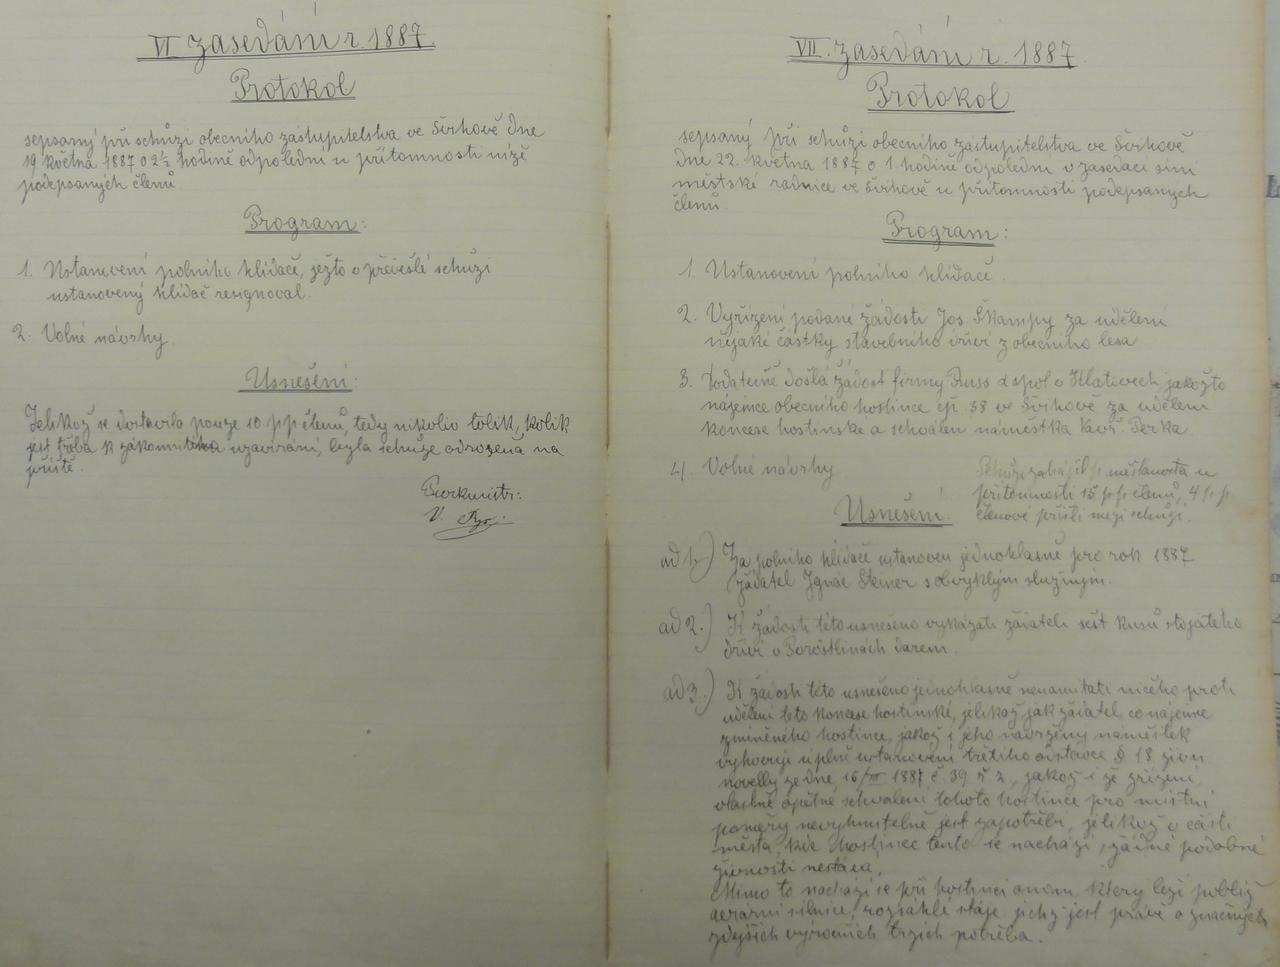 VI zasedání r. 1887.
Protokol
sepsaný při schůzi obecního zastupitelstva ve Švihově dne
19. května 1887 o 2½ hodině odpolední u přítomnosti níže
podepsaných členů.
Program:
1. Ustanovení polního hlídače, ježto v převešlé schůzi
ustanovený hlídač resignoval.
2. Volné návrhy.
Usnešení:
Jelikož se dostavilo pouze 10 p p členů, tedy nikoliv tolik, kolik
jest třeba k uzavírání, byla schůze odročena na
příště.
Purkmistr:
V.
VII. zasedání r. 1887
Protokol
sepsaný při schůzi obecního zastupitelstva ve Švihově
dne 22. května 1887 o 1. hodině odpolední v zasedací síni
městské radnice ve Švihově u přítomnosti podepsaných
členů
Program:
1. Ustanovení polního hlídače.
2. Vyřízení podané žádosti Jos. Škampy za udělení
nějaké částky stavebního dříví z obecního lesa
3. Dodatečně došlá žádost firmy Russ & spol. v Klatovech jakožto
nájemce obecního hostince čp. 38 ve Švihově za udělení
koncese hostinské a schválení náměstka Perka.
4. Volné návrhy.
Schůzi zahájil p. měšťanosta u
přítomnosti 15 p. p. členů, 4 p. p.
členové přišli mezi schůzí.
Usnešení
ad 1.) Za polního hlídače ustanoven jednohlasně pro rok 1887
žadatel Ignac Steiner s obvyklým služným.
ad 2.) K žádosti této usnešeno vykázati žadateli šest kusů stojatého
dříví v Poroštlinách darem.
ad 3.) K žádosti této usnešeno jednohlasně nenamítati ničeho proti
udělení této koncese hostinské, jelikož jak žadatel co nájemce
zmíněného hostince, jakož i jeho navržený náměstek
vyhovují úplně ustanovení třetího odstavce § 18 živn.
novelly ze dne 16/III 1887 č. 39 ř z., jakož i že zřízení
vlastně opětné schválení tohoto hostince pro místní
poměry nevyhnutelně jest zapotřebí, jelikož v části
města, kde hostinec tento se nachází, žádné podobné
živnosti nestává.
Mimo to nachází se při hostinci onom, který leží poblíž
aerární silnice, rozsáhlé stáje, jichž jest právě o značných
zdejších výročních trzích potřeba.